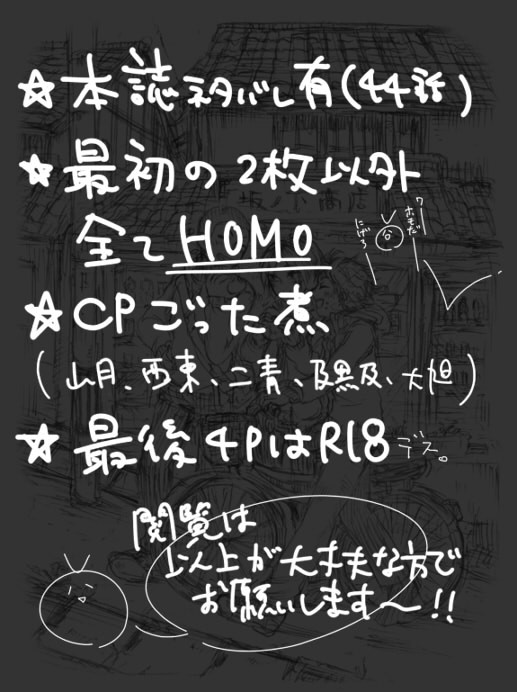 ☆本誌ネタバレ有(44話)
☆最初の2枚以外
全てHOMO
ワーホモだ
にげろ
☆CPごった煮
(山月、西東、二青、及黒及、大旭)
☆最後4PはR18デス。
閲覧は
以上が大丈夫な方で
お願いします〜!!